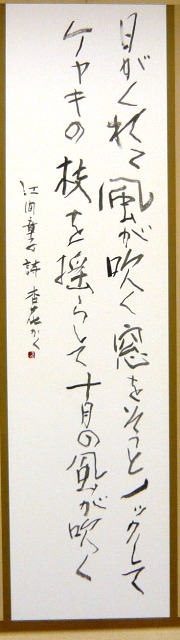 日がくれて風が吹く窓をそっとノックして
ケヤキの枝を揺らして十月の風が吹く
江間章子 詩 杏花かく